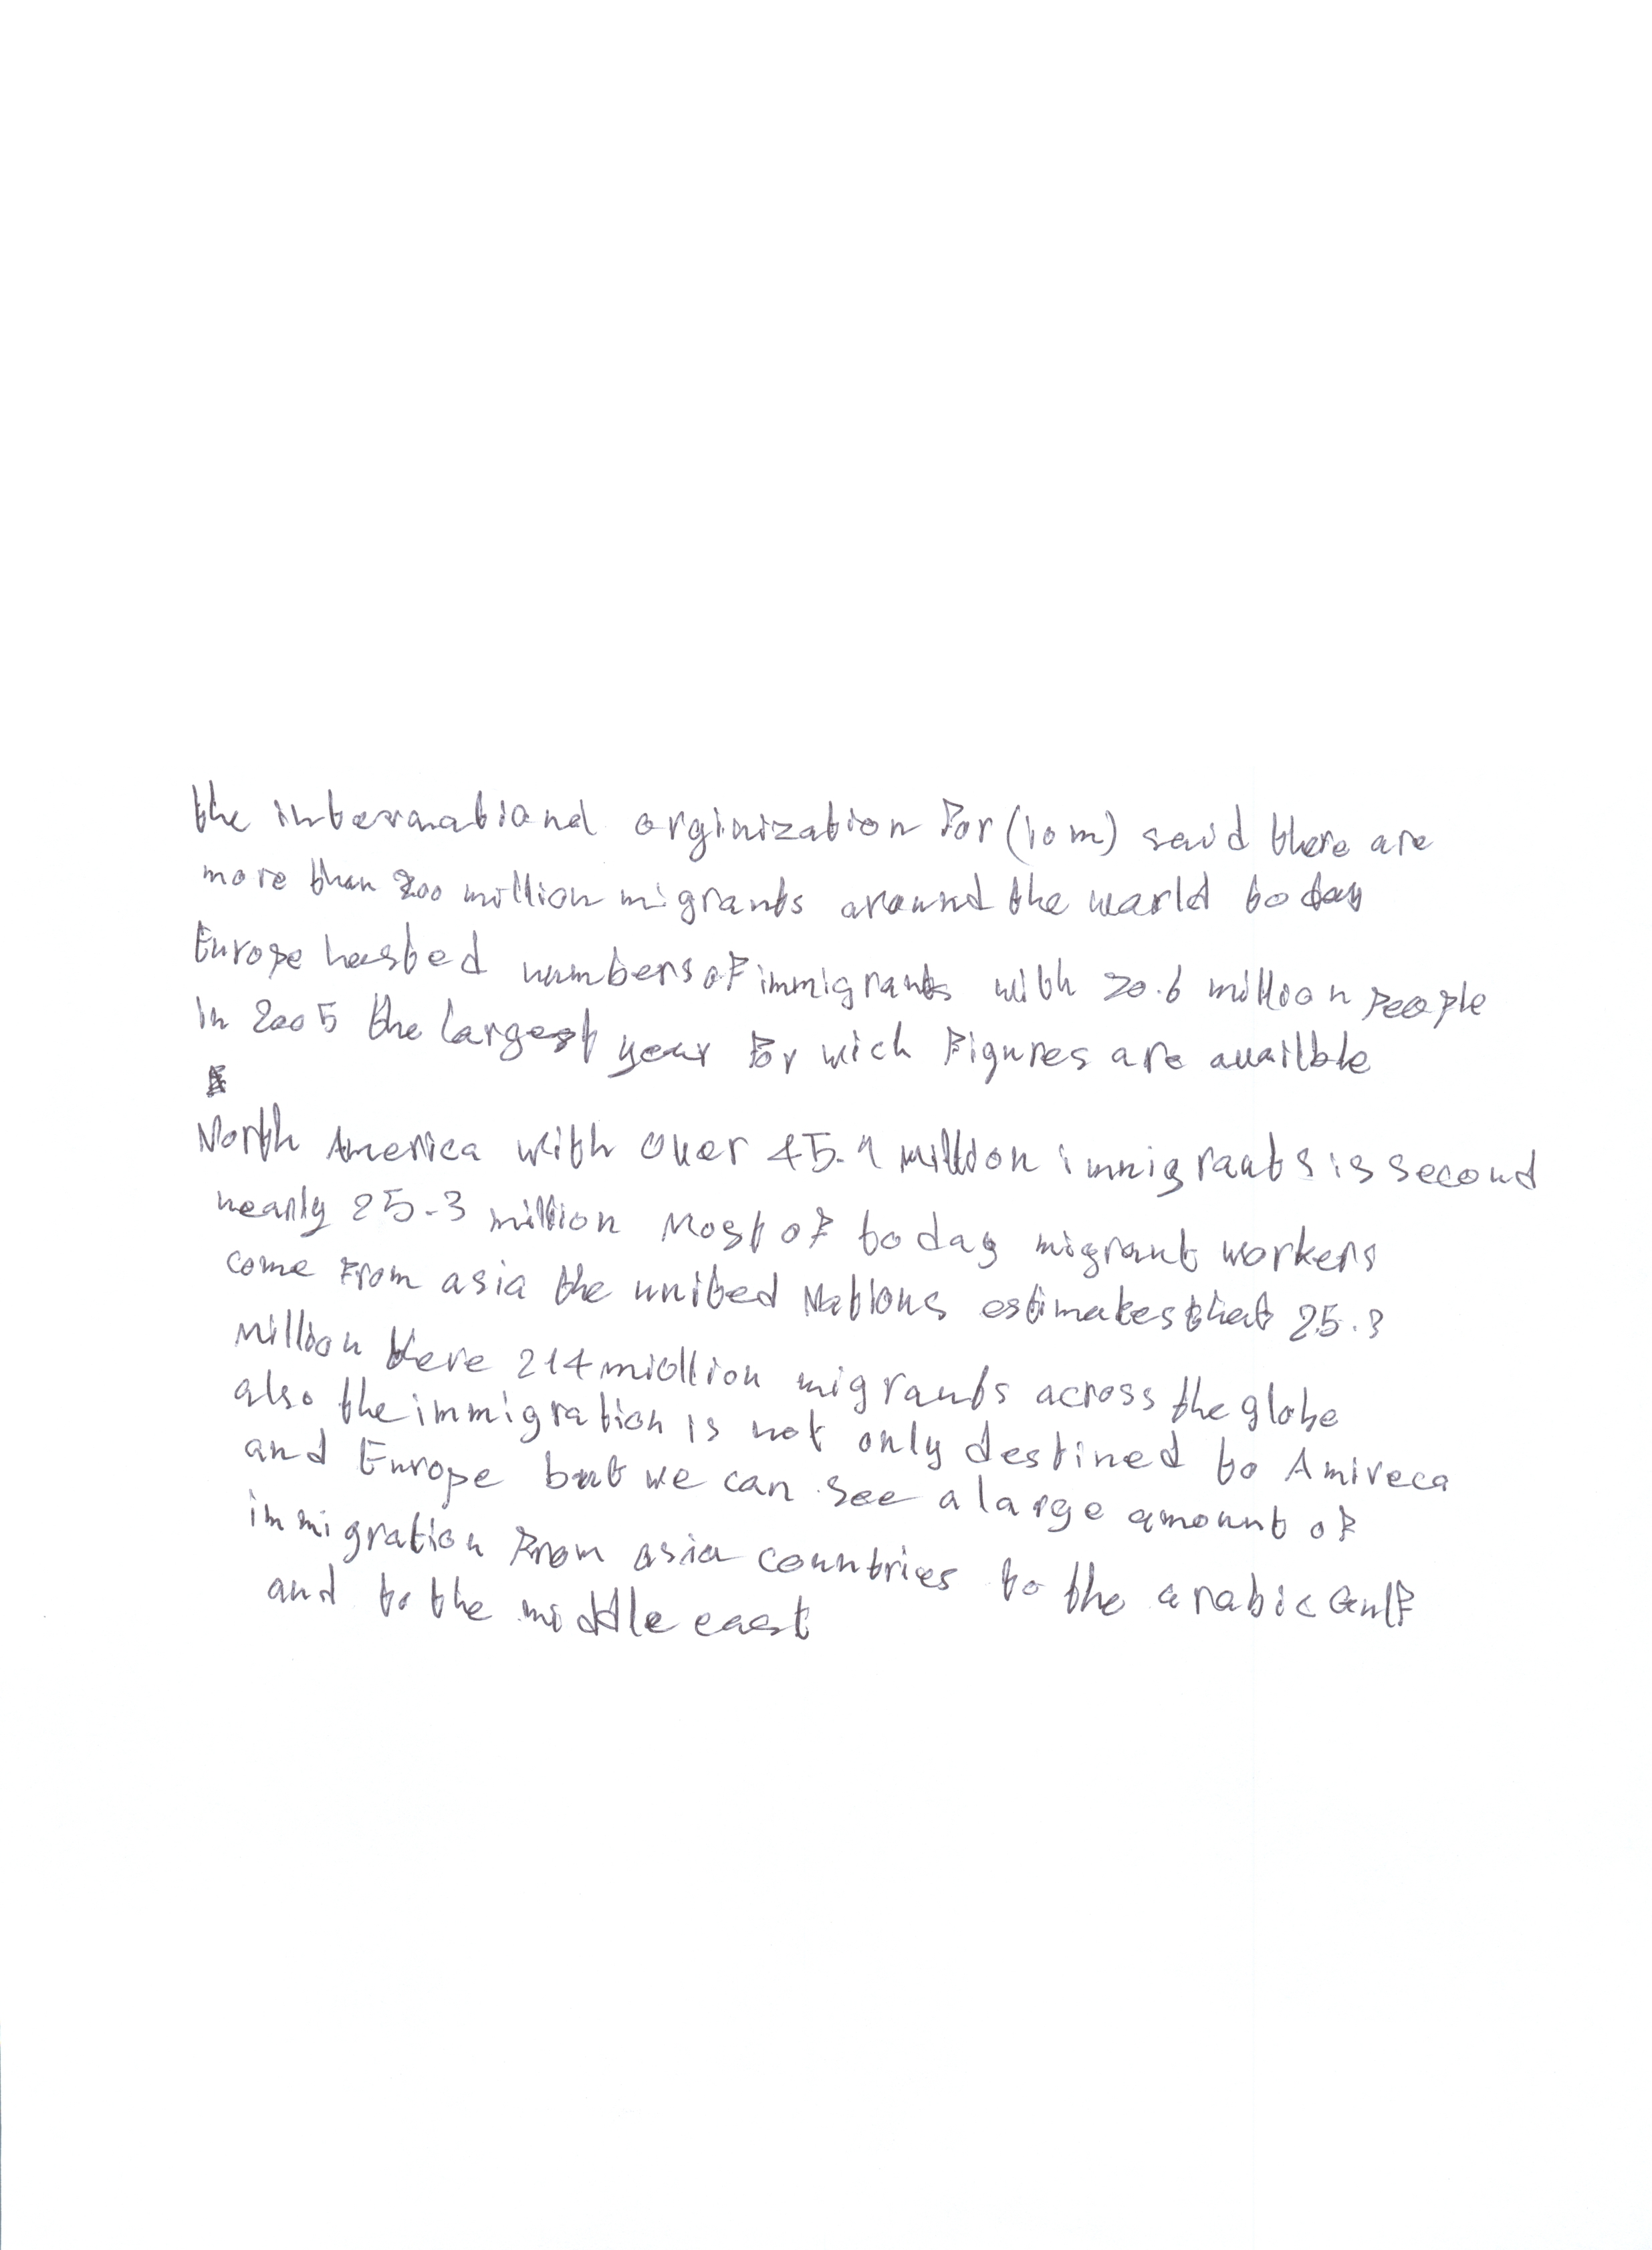 the international orginization for (iom) said there are
more than 200 million migrants around the world today
Europe hosted numbers of immigrants with 70.6 million people
in 2005 the largest year for wich figures are availble
North America with over 45.1 million immigrants is second
nearly 25.3 million Most of today migrant workers
come from asia the united Nations estimates that 25.3
million there 214 miollion migrants across the globe
also the immigration is not only destined to Amireca
and Europe but we can see a large amount of
immigration from asia countries to the arabic Gulf
and to the middle east